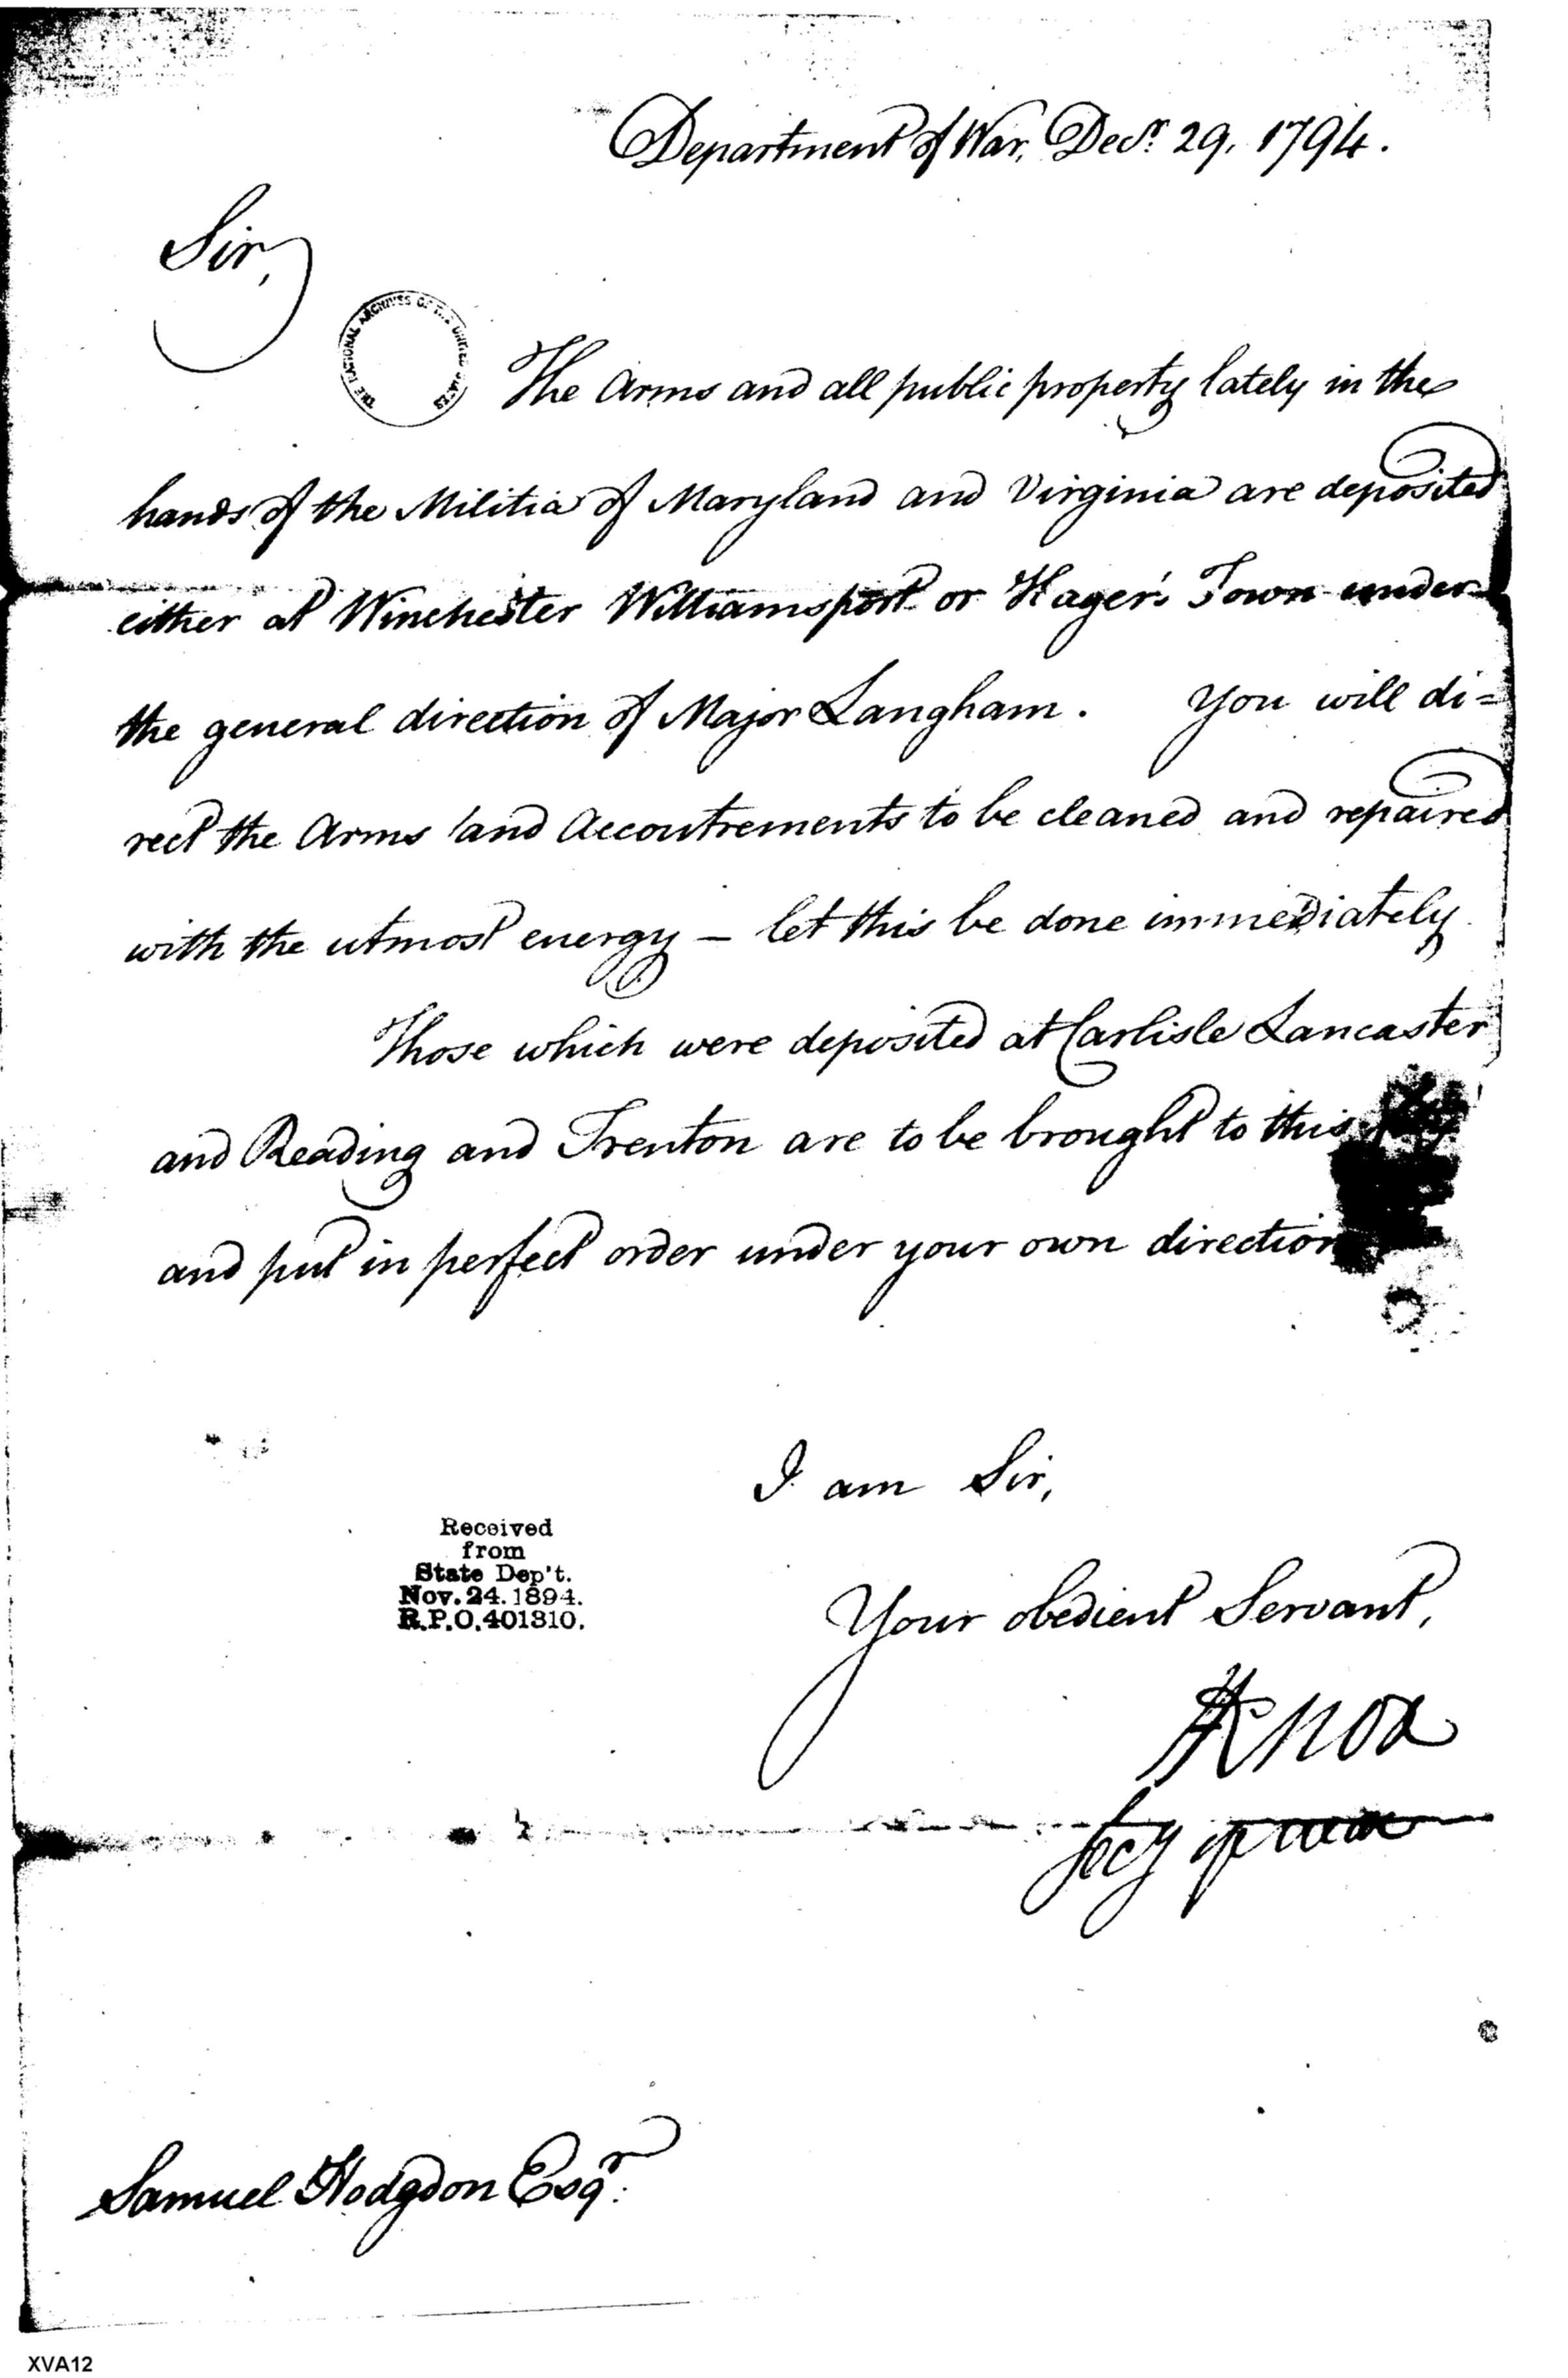 Department of War, Decr. 29, 1794.
Sir,
THE NATIONAL ARCHIVES OF THE UNITED STATES
The Arms and all public property lately in the
hands of the Militia of Maryland and Virginia are deposited
either at Winchester Williamsport or Hager's Town under
the general direction of Major Langham. You will di=
rect the Arms and Accoutrements to be cleaned and repaired
with the utmost energy – let this be done immediately
Those which were deposited at Carlisle Lancaster
and Reading and Trenton are to be brought to this
and put in perfect order under your own direction
I am Sir,
Received
from
State Dep't.
Nov. 24. 1894.
R.P.O. 401310.
Your obedient Servant,
HKnox
Secy of War
Samuel Hodgdon Esqr:
XVA12